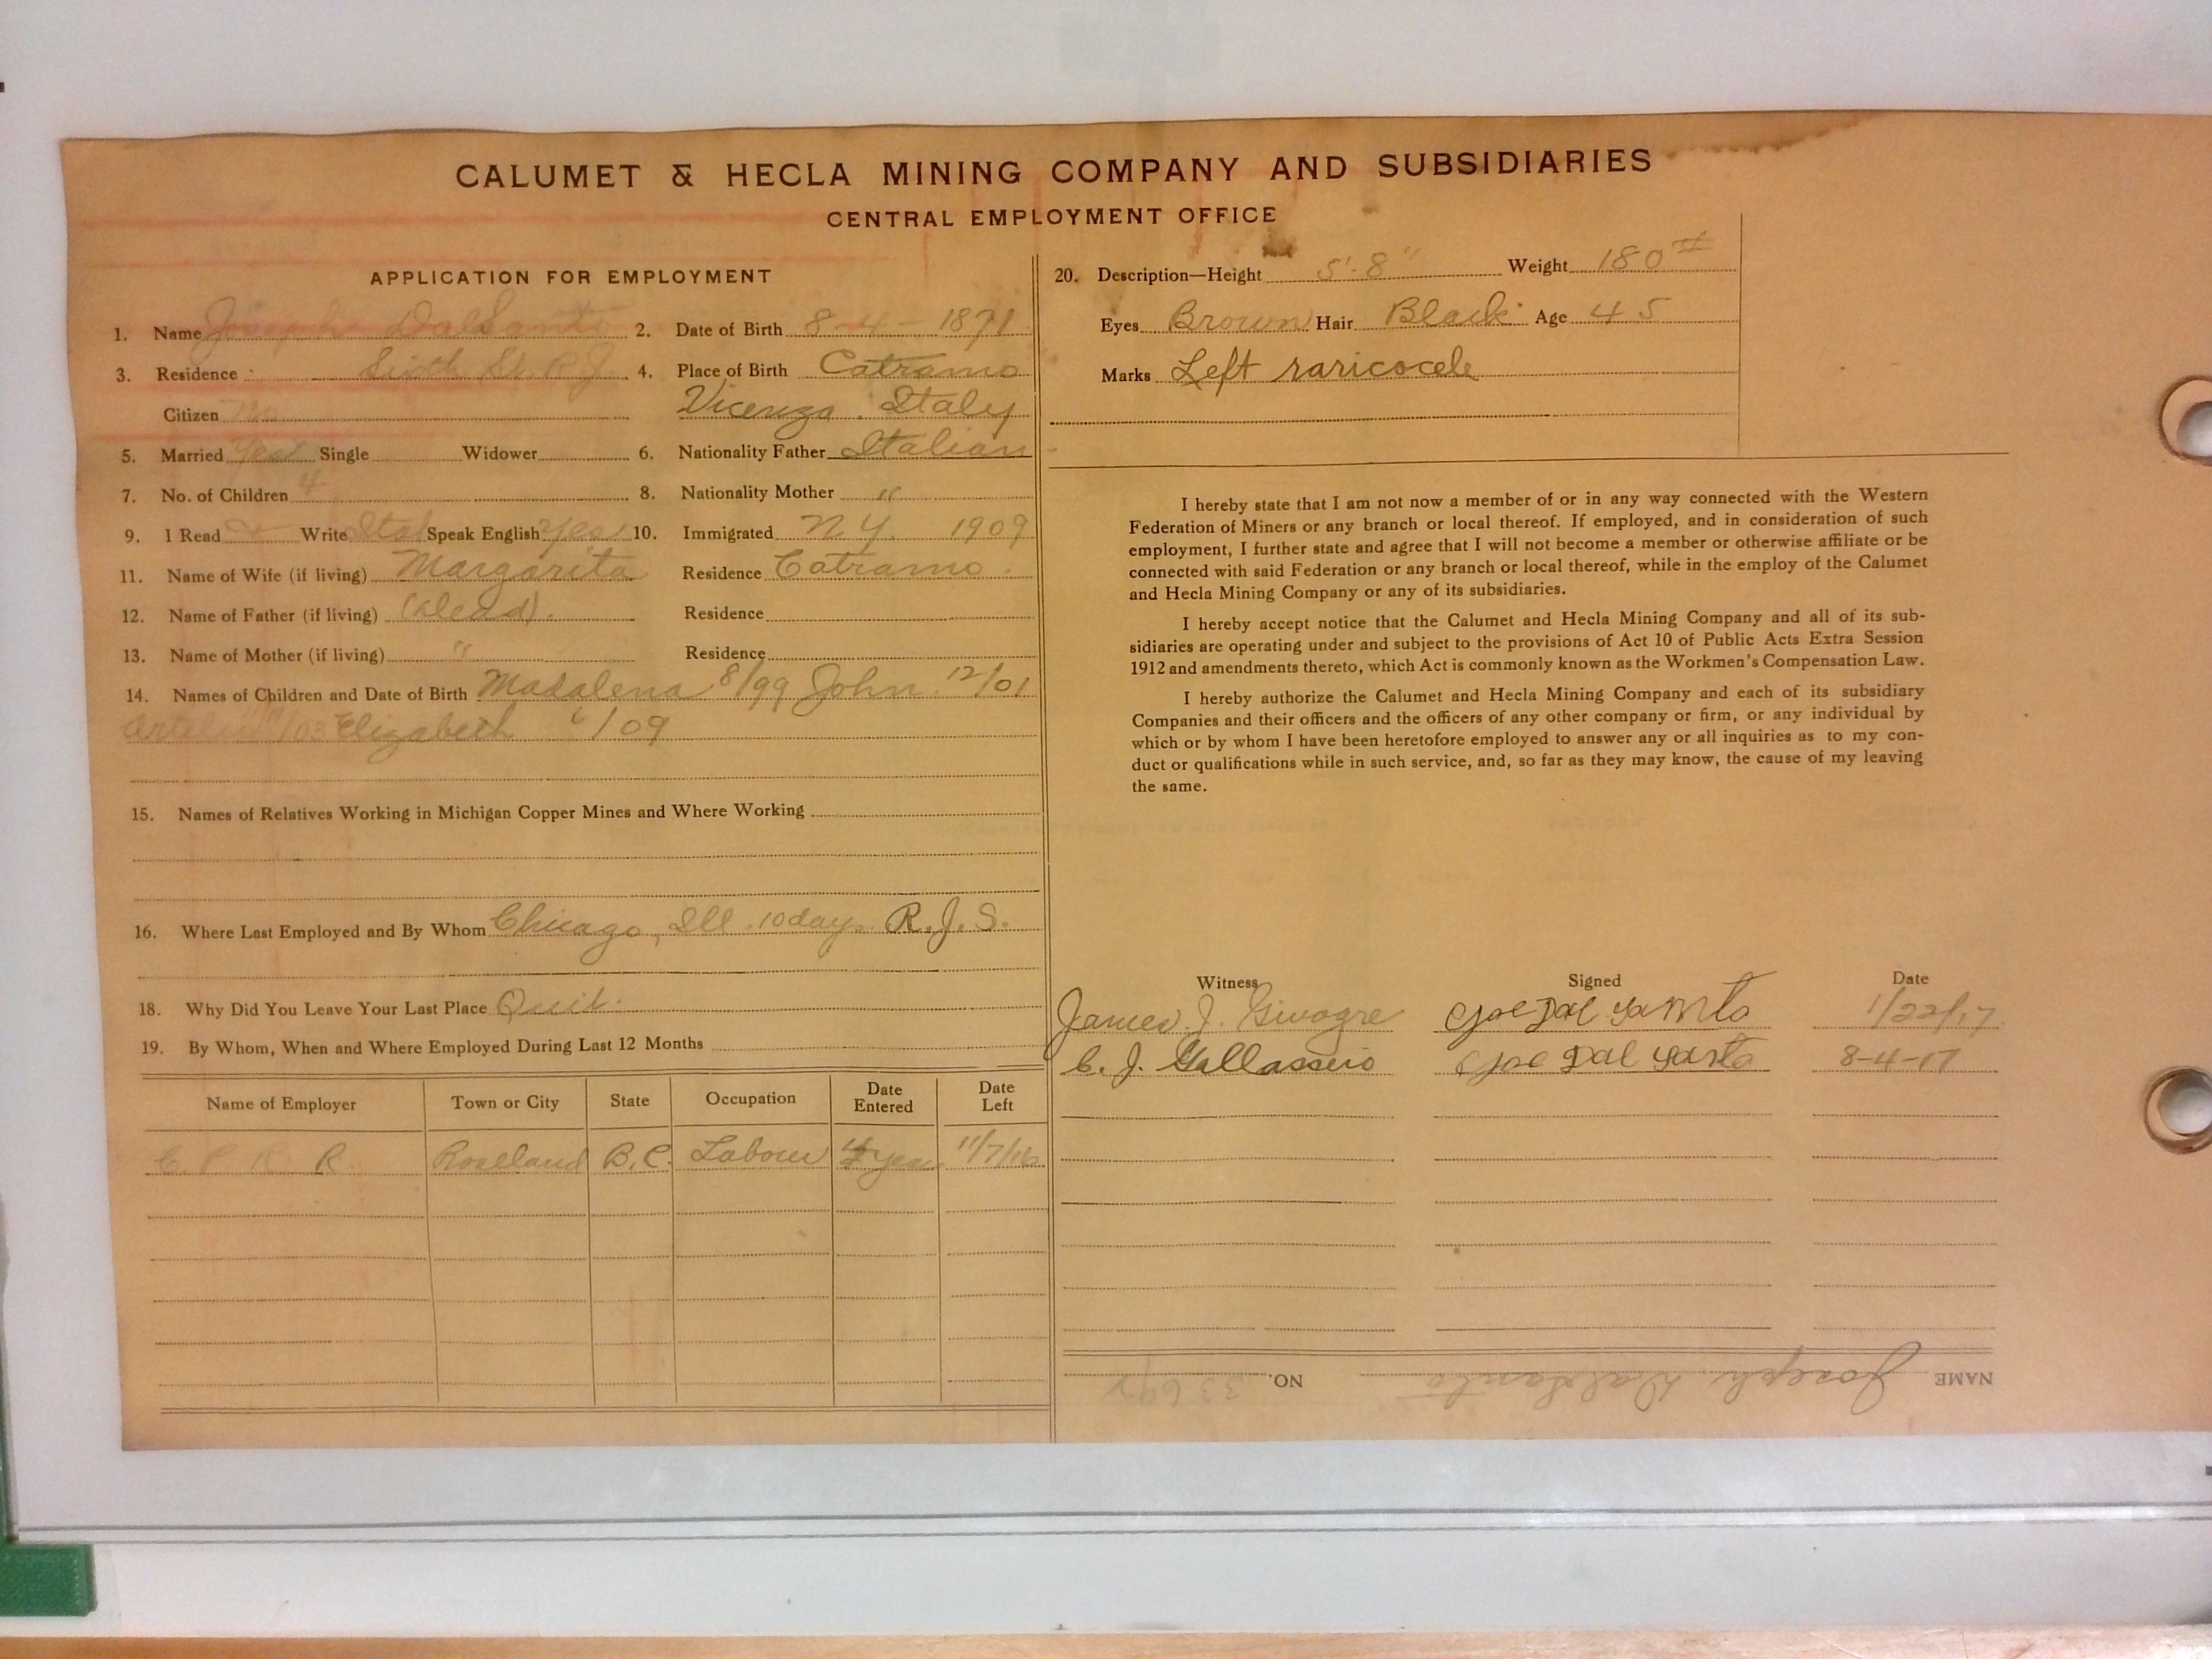 CALUMET & HECLA MINING COMPANY AND SUBSIDIARIES
CENTRAL EMPLOYMENT OFFICE
APPLICATION FOR EMPLOYMENT
1. Name Joseph DalSanto 2. Date of Birth 8-4-1871
3. Residence Sixth St. R J. 4. Place of Birth Catramo
Citizen No Vicenza. Italy
5. Married Yes Single Widower 6. Nationality Father Italian
7. No. of Children 4 8. Nationality Mother "
9. I Read & Write Ital Speak English Yes 10. Immigrated N.Y. 1909
11. Name of Wife (if living) Margarita Residence Catramo.
12. Name of Father (if living) (Dead). Residence
13. Name of Mother (if living) " Residence
14. Names of Children and Date of Birth Madalena 8/99 John 12/01
/03 Elizabeth 6/09
15. Names of Relatives Working in Michigan Copper Mines and Where Working
16. Where Last Employed and By Whom Chicago, Ill. 10 days. R.J.S.
18. Why Did You Leave Your Last Place Quit.
19. By Whom, When and Where Employed During Last 12 Months
Name of Employer Town or City State Occupation Date Entered Date Left
C. P. R. R. Roseland B.C. Labour 4 year 11/7/16
20. Description—Height 5'-8" Weight 180#
Eyes Brown Hair Black Age 45
Marks Left raricocele
I hereby state that I am not now a member of or in any way connected with the Western
Federation of Miners or any branch or local thereof. If employed, and in consideration of such
employment, I further state and agree that I will not become a member or otherwise affiliate or be
connected with said Federation or any branch or local thereof, while in the employ of the Calumet
and Hecla Mining Company or any of its subsidiaries.
I hereby accept notice that the Calumet and Hecla Mining Company and all of its sub-
sidiaries are operating under and subject to the provisions of Act 10 of Public Acts Extra Session
1912 and amendments thereto, which Act is commonly known as the Workmen's Compensation Law.
I hereby authorize the Calumet and Hecla Mining Company and each of its subsidiary
Companies and their officers and the officers of any other company or firm, or any individual by
which or by whom I have been heretofore employed to answer any or all inquiries as to my con-
duct or qualifications while in such service, and, so far as they may know, the cause of my leaving
the same.
Witness Signed Date
James J. Joe Dal Santo 1/22/17
C. J. Joe Dal Santo 8-4-17
NAME Joseph DalSanto NO.